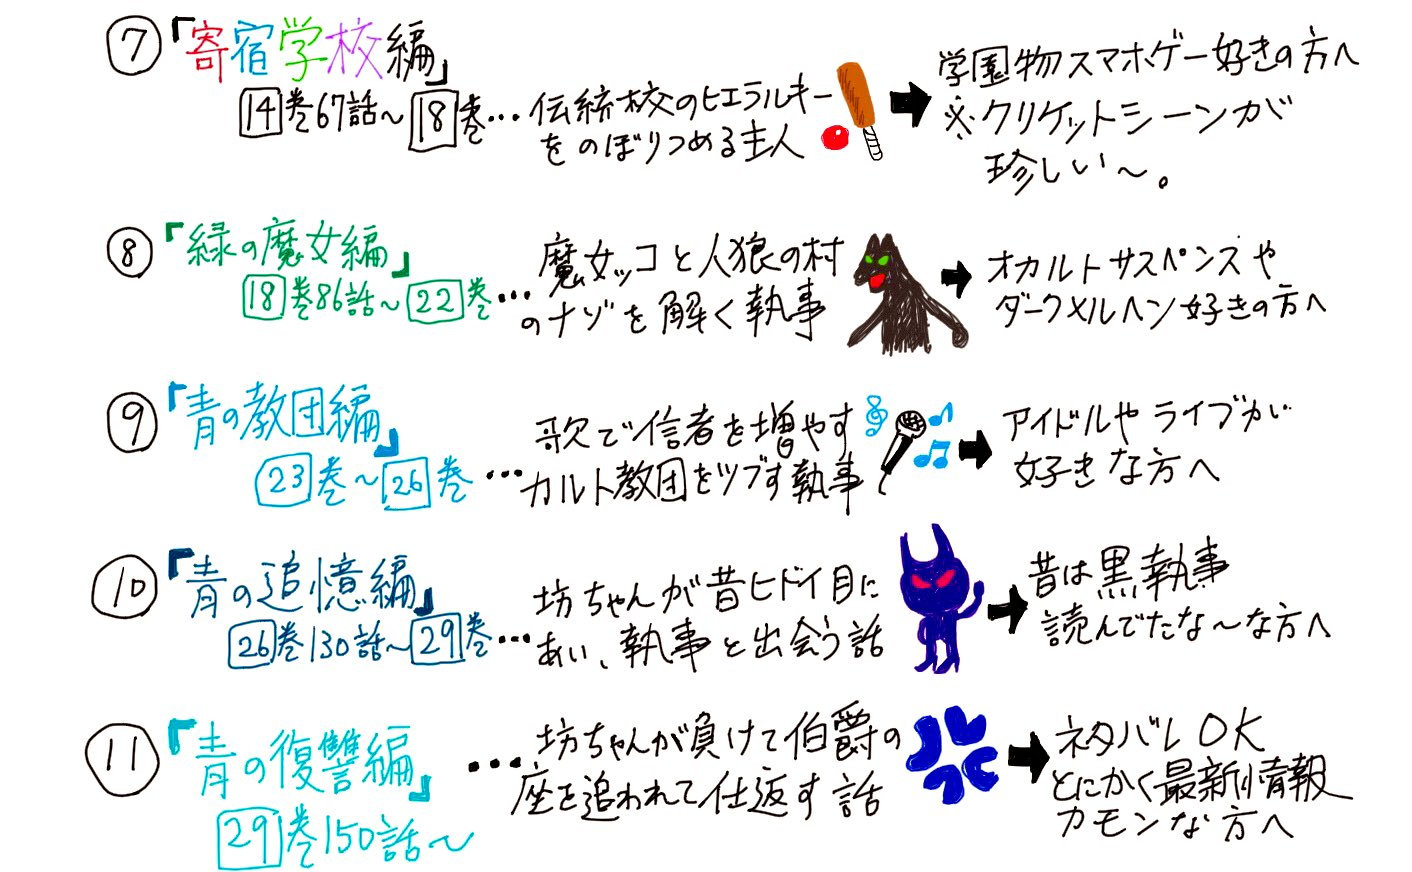 ⑦『寄宿学校編』
14巻67話〜18巻…伝統校のヒエラルキー
をのぼりつめる主人
学園物スマホゲー好きの方へ
※クリケットシーンが
珍しい〜。
⑧『緑の魔女編』
18巻86話〜22巻…魔女ッコと人狼の村
のナゾを解く執事
オカルトサスペンスや
ダークメルヘン好きの方へ
⑨『青の教団編』
23巻〜26巻…歌で信者を増やす
カルト教団をツブす執事
アイドルやライブが
好きな方へ
⑩『青の追憶編』
26巻130話〜29巻…坊ちゃんが昔ヒドイ目に
あい、執事と出会う話
昔は黒執事
読んでたな〜な方へ
⑪『青の復讐編』
29巻150話〜…坊ちゃんが負けて伯爵の
座を追われて仕返す話
ネタバレOK
とにかく最新情報
カモンな方へ